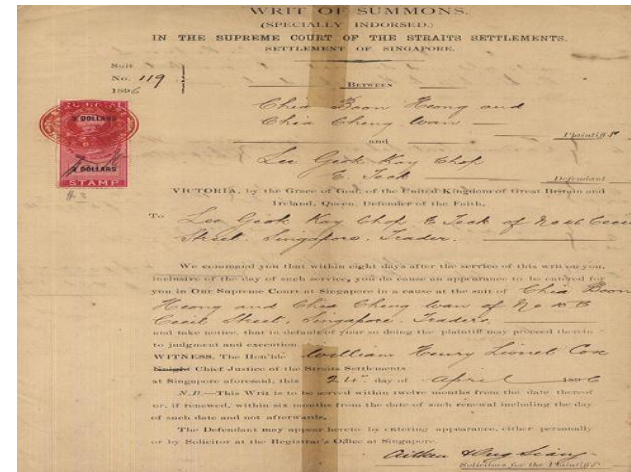 WRIT OF SUMMONS.
(SPECIALLY INDORSED.)
IN THE SUPREME COURT OF THE STRAITS SETTLEMENTS.
SETTLEMENT OF SINGAPORE.
Suit
No. 119
1896
BETWEEN
Chia Boon Heong and
Chia Cheng Wan
Plaintiffs
and
Lee Geok Kay Chop
E. Teak
Defendant
2 DOLLARS
2 DOLLARS
STAMP
VICTORIA, by the Grace of God, of the United Kingdom of Great Britain and
Ireland, Queen, Defender of the Faith,
To Lee Geok Kay Chop E Teak of Cecil
Street, Singapore, Trader.
We command you that within eight days after the service of this writ on you,
inclusive of the day of such service, you do cause an appearance to be entered for
you in Our Supreme Court at Singapore in a cause at the suit of Chia Boon
Heong and Chia Cheng Wan of No
Cecil Street, Singapore, Traders
and take notice, that in default of your so doing the plaintiff may proceed therein
to judgment and execution.
WITNESS, The Hon'ble William Henry Lionel Cox
Knight Chief Justice of the Straits Settlements
at Singapore aforesaid, this 24th day of April 1896
N.B.—This Writ is to be served within twelve months from the date thereof
or, if renewed, within six months from the date of such renewal including the day
of such date and not afterwards.
The Defendant may appear hereto by entering appearance, either personally
or by Solicitor at the Registrar's Office at Singapore.
Aitken & Ong Siang
Solicitors for the Plaintiffs